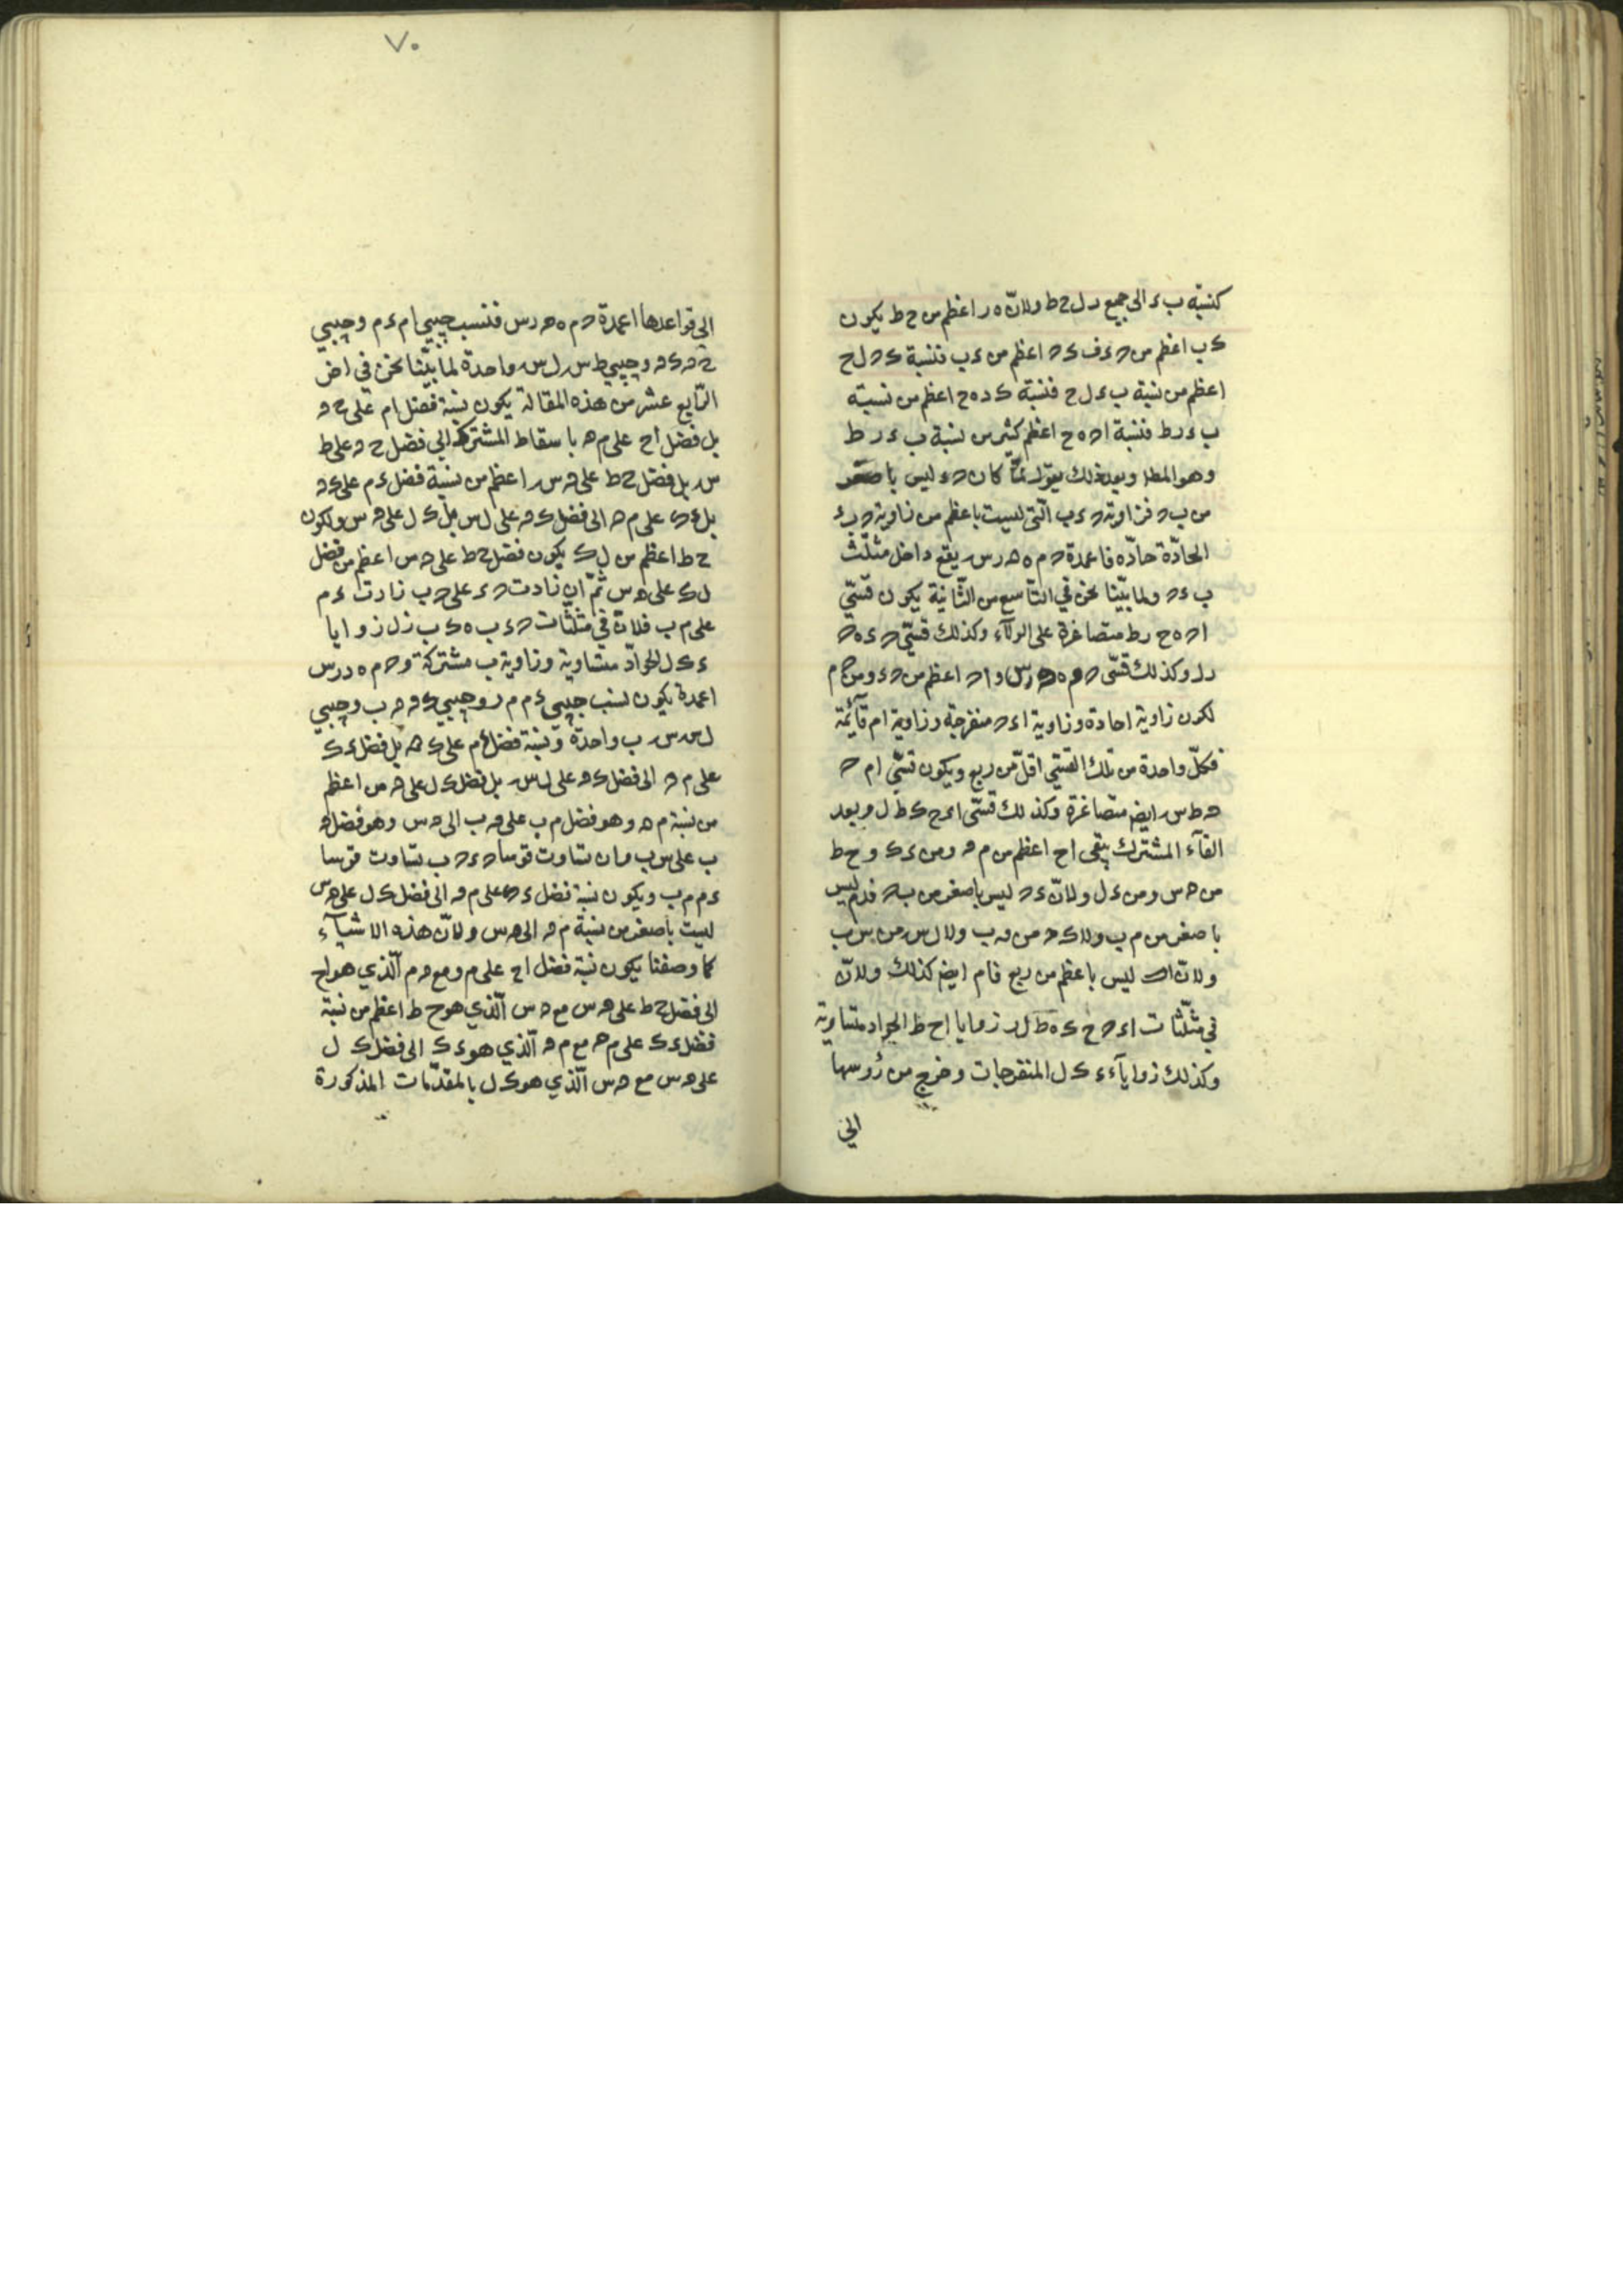 كنسبة ب ء الى جميع ر ل ح ط ولانّ ه ر اعظم من ح ط يكون
ك ب اعظم من ح ء ف ك ح اعظم من ء ب فنسبة ك ح ل ح
اعظم من نسبة ب ء ل ح فنسبة ك د ه ح اعظم من نسبة
ب ء ر ط فنسبة ا ح ه ح اعظم كثير من نسبة ب ء ر ط
وهو المط وبعد ذلك يقول لمّا كان ح ء ليس باصغر
من ب ح فزاوية ح ء ب الّتى ليست باعظم من زاوية ح ب ء
الحادّة حادّة فاعمدة ح م ه ه ر س يقع داخل مثلّث
ب ء ح ولما بيّنا نحن في التّاسع من الثّانية يكون قسّي
ا ح ه ح ر ط متصاغرة على الولآء وكذلك قسّي ح ء ه
ر ل وكذلك قسّى ح م ه ر س و ا ح اعظم من ح ء ومن ح م
لكون زاوية ا حادة وزاوية ا ء ح منفرجة وزاوية ا م قآئمة
فكلّ واحدة من تلك القسّي اقلّ من ربع ويكون قسّي ا م ح
ه ط س ايض متصاغرة وكذلك قسّى ا ء ح ك ط ل وبعد
القآء المشترك يبقى ا ح اعظم من م ه ومن ء ك و ح ط
من ه س ومن ء ل ولانّ ء ح ليس باصغر من ب ح فدم ليس
باصغر من م ب ولا ك ه من ه ب ولا ل س من س ب
ولانّ ا ح ليس باعظم من ربع فا م ايض كذلك ولانّ
في مثلّثات ا ء ح ح ك ه ط ل ر زوايا ا ح ط الحواد متساوية
وكذلك زوايا ء ك ل المنفرجات وخرج من رُوسها
الى
٧٠
الى قواعدها اعمدة ح م ه ه ر س فنسب جيبي ا م ء م وجيبي
ح ه ك ه وجيبي ط س ل س واحدة لما بيّنا نحن في اخر
الرّابع عشر من هذه المقالة يكون نسبة فضل ا م على ح ه
بل فضل ا ح على م ه باسقاط المشترك الى فضل ح ه على ط
س بل فضل ح ط على ه س اعظم من نسبة فضل ء م على ك ه
بل ء ك على م ه الى فضل ك ه على ل س بل ك ل على ه س ولكون
ح ط اعظم من ل ك يكون فضل ح ط على ه س اعظم من فضل
ل ك على ه س ثمّ ان زادت ح ء على ح ب زادت ء م
على م ب فلانّ في مثلّثات ح ء ب ه ك ب ر ل زوايا
ء ك ل الحوادّ متساوية وزاوية ب مشتركة و ح م ه ر س
اعمدة يكون نسب جيبي ء م م ب وجيبي ك ه ه ب وجيبي
ل س س ب واحدة ونسبة فضل ء م على ك ه بل فضل ء ك
على م ه الى فضل ك ه على ل س بل فضل ك ل على ه س اعظم
من نسبة م ه وهو فضل م ب على ه ب الى ه س وهو فضل ه
ب على س ب وان تساوت قوسا ح ء ح ب تساوت قوسا
ء م م ب ويكون نسبة فضل ء ك على م ه الى فضل ك ل على ه س
ليست باصغر من نسبة م ه الى ه س ولانّ هذه الاشيآء
كما وصفنا يكون نسبة فضل ا ح على م ه مع ه م الّذي هو ا ح
الى فضل ح ط على ه س مع ه س الّذي هو ح ط اعظم من نسبة
فضل ء ك على م ه مع م ه الّذي هو ء ك الى فضل ك ل
على ه س مع ه س الّذي هو ك ل بالمقدّمات المذكورة